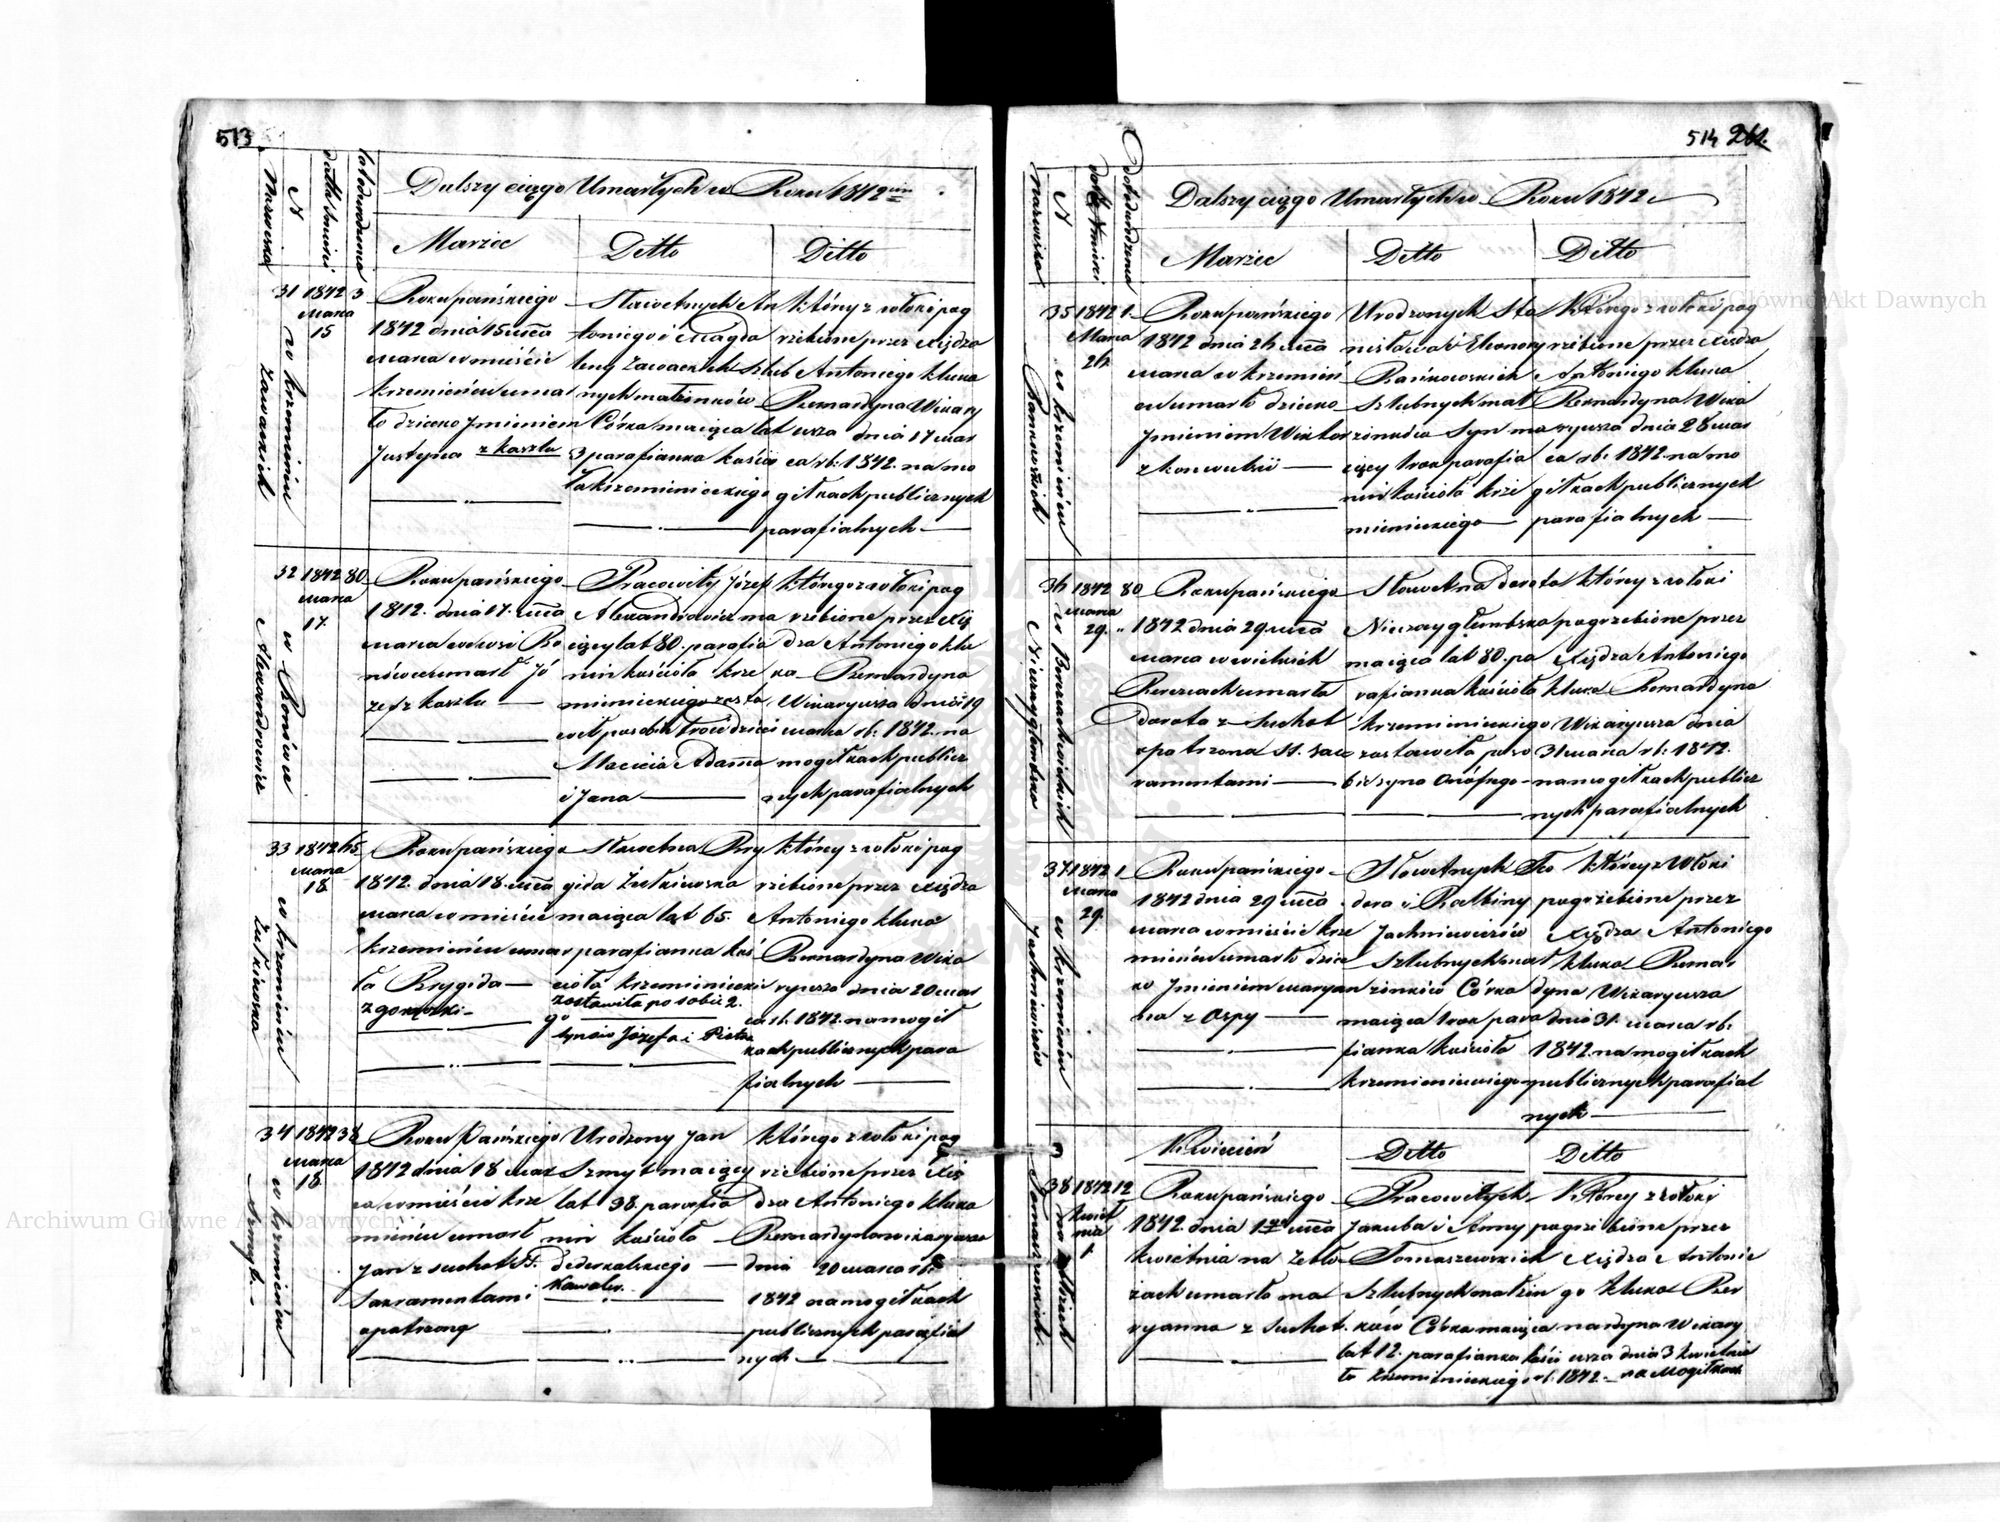 513
Dalszy ciąg Umarłych w Roku 1842
Marzec Ditto Ditto
Nazwiska
N
data śmierci
lat
31 1842 3
Marca
15
w Krzemieńcu
Zawackich
Roku pańskiego
1842 dnia 15 mca
Marca w mieście
Krzemieńcu umar
ło dziecko Imieniem
Justyna z kaszlu
Sławetnych An
toniego i Magda
leny Zawackich Szlub
nych małżonków
Córka maiąca lat
3 parafianka kościo
ła krzemienieckiego
który zwłoki pog
rzebione przez Xiędza
Antoniego Kluka
Bernardyna Wikary
usza dnia 17 mar
ca rb: 1842. na mo
giłkach publicznych
parafialnych
32 1842 80
Marca
17.
Alexandrowicz
Roku pańskiego
1842. dnia 17. mca
Marca we wsi Bo
nówce umarł Jó
zef z kaszlu
Pracowity Józef
Alexandrowicz ma
iący lat 80. parafia
nin kościoła krze
mienieckiego zosta
wił posobie troie dzieci
Macieia Adama
i Jana
którego zwłoki pog
rzebione przez Xię
dza Antoniego Klu
ka Bernardyna
Wikaryusza dnia 19
marca rb: 1842. na
mogiłkach publicz
nych parafialnych
33 1842 65
Marca
18
w Krzemieńcu
Żułkiewska
Roku pańskiego
1842. dnia 18. mca
Marca w mieście
Krzemieńcu umar
ła Brygida
z gorączki
Sławetna Bry
gida Żułkiewska
maiąca lat 65.
parafianka koś
cioła krzemienieckie
go zostawiła po sobie 2.
synów Józefa i Piotra
który zwłoki pog
rzebione przez Xiędza
Antoniego Kluka
Bernardyna Wika
ryusza dnia 20 mar
ca rb. 1842. na mogił
kach publicznych para
fialnych
34 1842 38
Marca
18
w Krzemieńcu
Szmyt
Roku Pańskiego
1842 dnia 18 Mar
ca w mieście Krze
mieńcu umarł
Jan z suchot S.
Sakramentami
opatrzony
Urodzony Jan
Szmyt maiący
lat 38. parafia
nin kościoła
Dederkalskiego
Kawaler
którego zwłoki pog
rzebione przez Xię
dza Antoniego Kluka
Bernardyna wikaryusza
dnia 20 marca rb:
1842 na mogiłkach
publicznych parafial
nych
514 262.
Dalszy ciąg Umarłych w Roku 1842
Marzec Ditto Ditto
Nazwiska
N
data śmierci
35 1842 1
Marca
26
w Krzemieńcu
Bańkowskich
Roku pańskiego
1842 dnia 26 mca
Marca w Krzemień
cu umarło dziecko
Imieniem Wiktor
z konwulsii
Urodzonych Sta
nisława i Eleonory
Bańkowskich
Szlubnych mał
żonków Syn ma
iący 1 rok parafia
nin kościoła krze
mienieckiego
Którego zwłoki pog
rzebione przez Xiędza
Antoniego Kluka
Bernardyna Wika
ryusza dnia 28 mar
ca rb: 1842. na mo
giłkach publicznych
parafialnych
36 1842 80
Marca
29.
Roku pańskiego
1842 dnia 29 mca
Marca w wielkich
Berezcach umarła
Dorota z Suchot
opatrzona SS. Sac
ramentami
Sławetna Dorota
maiąca lat 80. pa
rafianka kościoła
krzemienieckiego
zostawiła poso
bie syna Onófrego
który zwłoki
pogrzebione przez
Xiędza Antoniego
Kluka Bernardyna
Wikaryusza dnia
31 marca rb: 1842.
na mogiłkach publicz
nych parafialnych
37 1842 1
Marca
29.
w Krzemieńcu
Jachniewiczów
Roku pańskiego
1842 dnia 29 mca
Marca w mieście krze
mieńcu umarło dziec
ko Imieniem Maryan
na z Ospy
Sławetnych Teo
dora i Balbiny
Jachniewiczów
Szlubnych mał
żonków Córka
maiąca 1 rok para
fianka kościoła
krzemienieckiego
której zwłoki
pogrzebione przez
Xiędza Antoniego
Kluka Bernar
dyna Wikaryusza
dnia 31. marca rb:
1842. na mogiłkach
publicznych parafial
nych
Kwiecień Ditto Ditto
38 1842 12
Kwiet
nia
1.
Tomaszewskich
Roku pańskiego
1842. dnia 1 mca
kwietnia na Zeblo
zach umarła Ma
ryanna z Suchot.
Pracowitych
Jakuba i Anny
Tomaszewskich
Szlubnych małżon
ków Córka maiąca
lat 12. parafianka kości
ła krzemienieckiego
Której zwłoki
pogrzebione przez
Xiędza Antonie
go Kluka Ber
nardyna Wikary
usza dnia 3 kwietnia
rb. 1842. na Mogiłkach
Archiwum Główne Akt Dawnych
Archiwum Główne Akt Dawnych